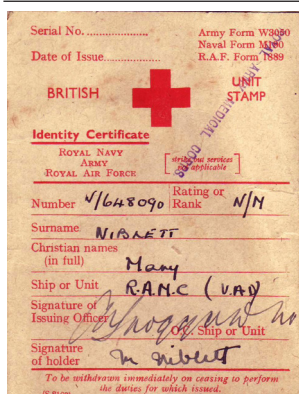 Serial No. ....................
Army Form W3050
Naval Form M190
Date of Issue....................
R.A.F. Form 1889
BRITISH
UNIT
STAMP
ROYAL ARMY MEDICAL CORPS
Identity Certificate
ROYAL NAVY
ARMY
ROYAL AIR FORCE
strike out services
not applicable
Number W/648090 Rating or
Rank N/M
Surname NIBLETT
Christian names
(in full) Mary
Ship or Unit R.A.M.C (V.A.D)
Signature of
Issuing Officer
O/c. Ship or Unit
Signature
of holder M Niblett
To be withdrawn immediately on ceasing to perform
the duties for which issued.